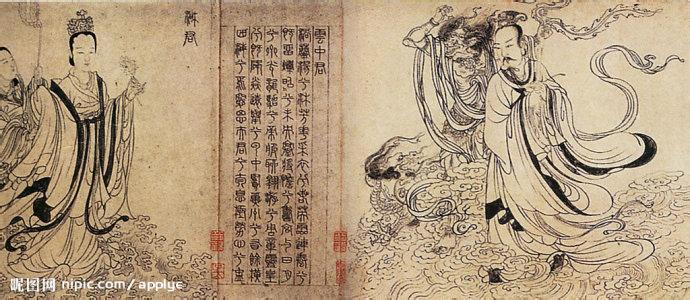 雲中君
浴蘭湯兮沐芳華采衣兮若英靈連蜷兮
既留爛昭昭兮未央謇將憺兮壽宮與日月
兮齊光龍駕兮帝服聊翱遊兮周章靈皇
皇兮既降猋遠舉兮雲中覽冀州兮有餘橫
四海兮焉窮思夫君兮太息極勞心兮
湘君
昵图网 nipic.com/applye